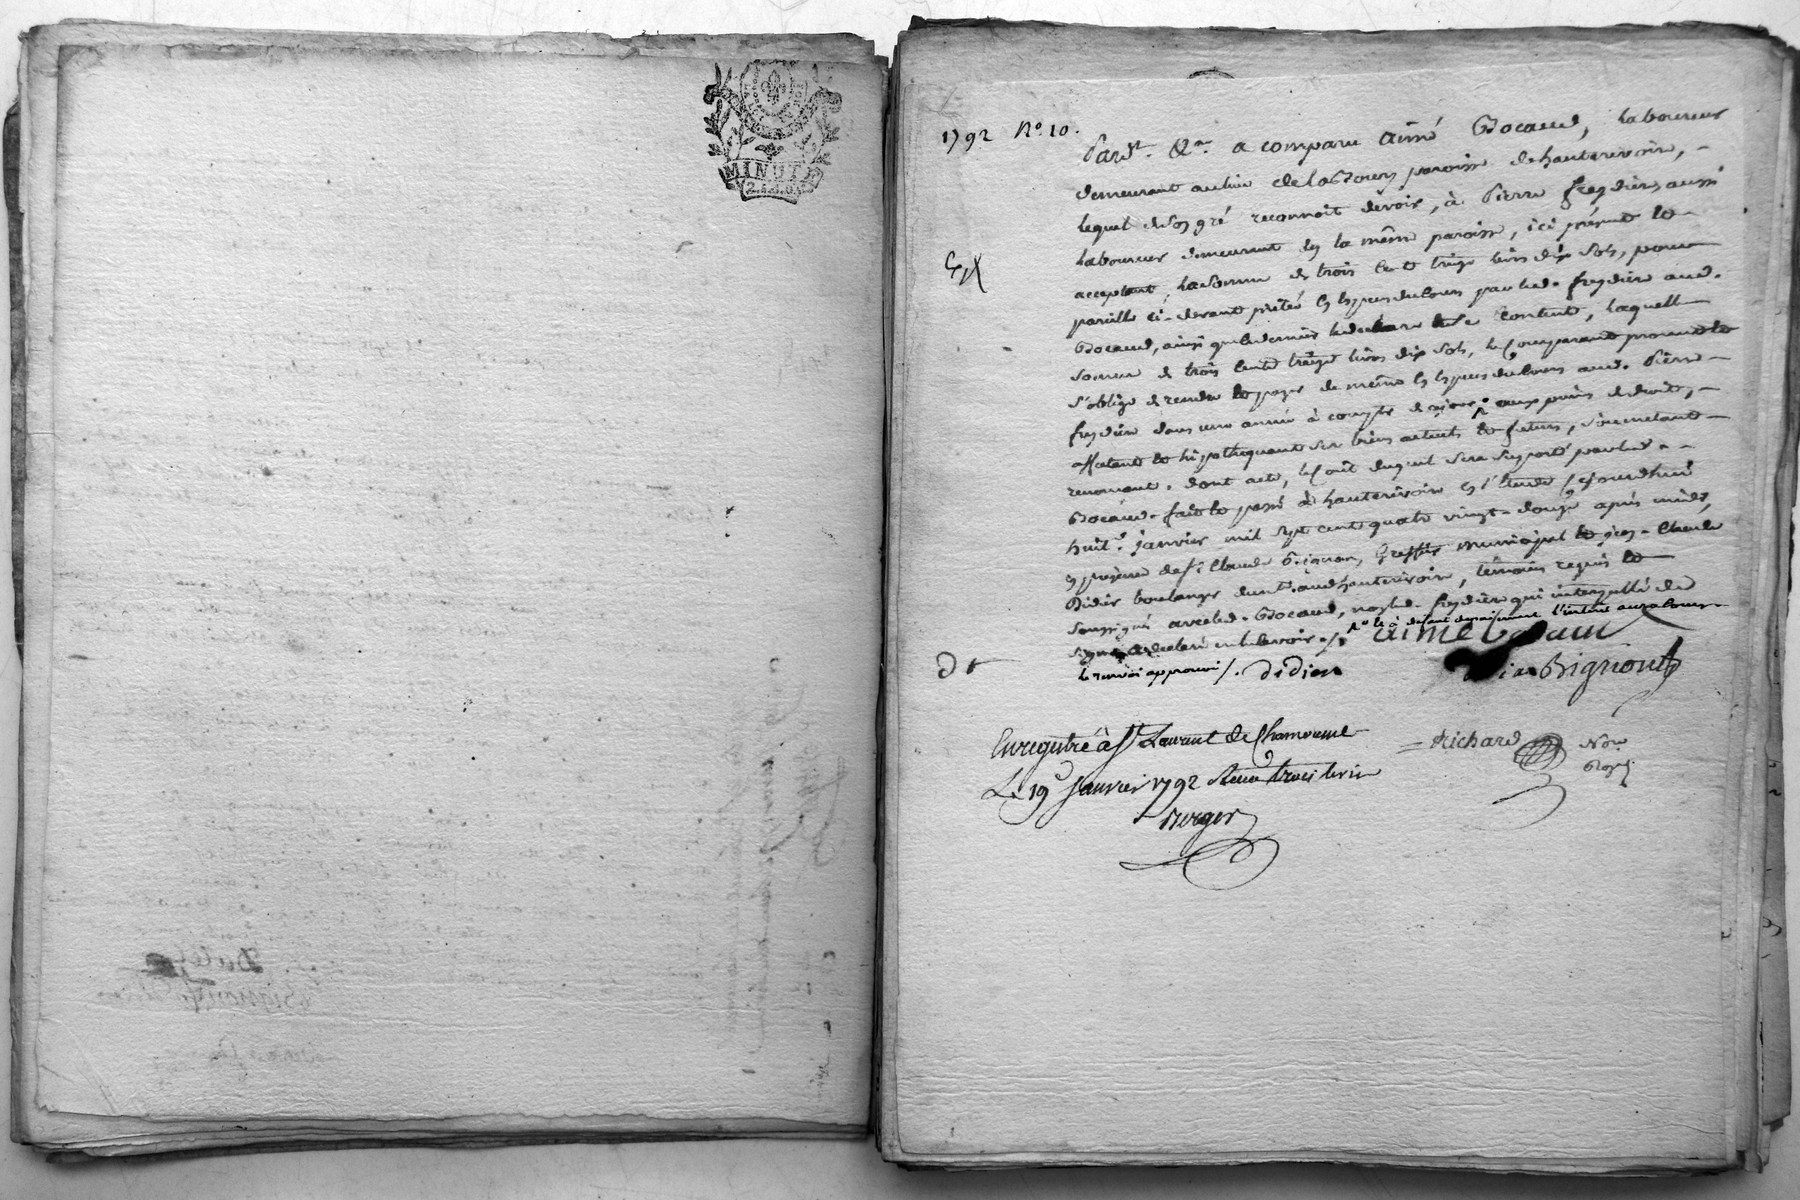 MINUTE
1792 No. 10.
Pardt. &a. a comparu aimé Bocaud, laboureur
demeurant au lieu de la paroisse de hauterivoire,
lequel de son gré reconnoit devoir, à Pierre freydière aussi
laboureur demeurant en la même paroisse, ici présent et
acceptant, la somme de trois cent treize livres dix sols, pour
pareille ci-devant prêtée en espèces de cours par led. freydière aud.
Bocaud, ainsi que le dernier le déclare content, laquelle
somme de trois cents treize livres dix sols, le comparant promet et
s'oblige de rendre et payer de même en espèces de cours aud. Pierre
freydière dans une année à compter de ce jour aux peines de droit,
affectant et hipothequant ses biens actuels et futurs, soumetant
renonçant. dont acte, le coût duquel sera suporté par led.
Bocaud. fait et passé à hauterivoire en l'étude cejourdhui
huit janvier mil sept cent quatre vingt-douze après midi,
en présence de sr. Claude Bignon, greffier municipal et jean-Claude
Didier boulanger demt. aud hauterivoire, témoins requis et
soussignés avec led. Bocaud, non led. freydière qui interpellé de
signer a déclaré ne le savoir ./.
et à defaut de paiement l'intérêt aura cours
aimé Bocaud
le renvoi approuvé /. didier
Bignon
Enregistré à St. Laurent de Chamousset
Le 19 Janvier 1792 Reçu trois livres
Berger
Richard
Nore
Royal